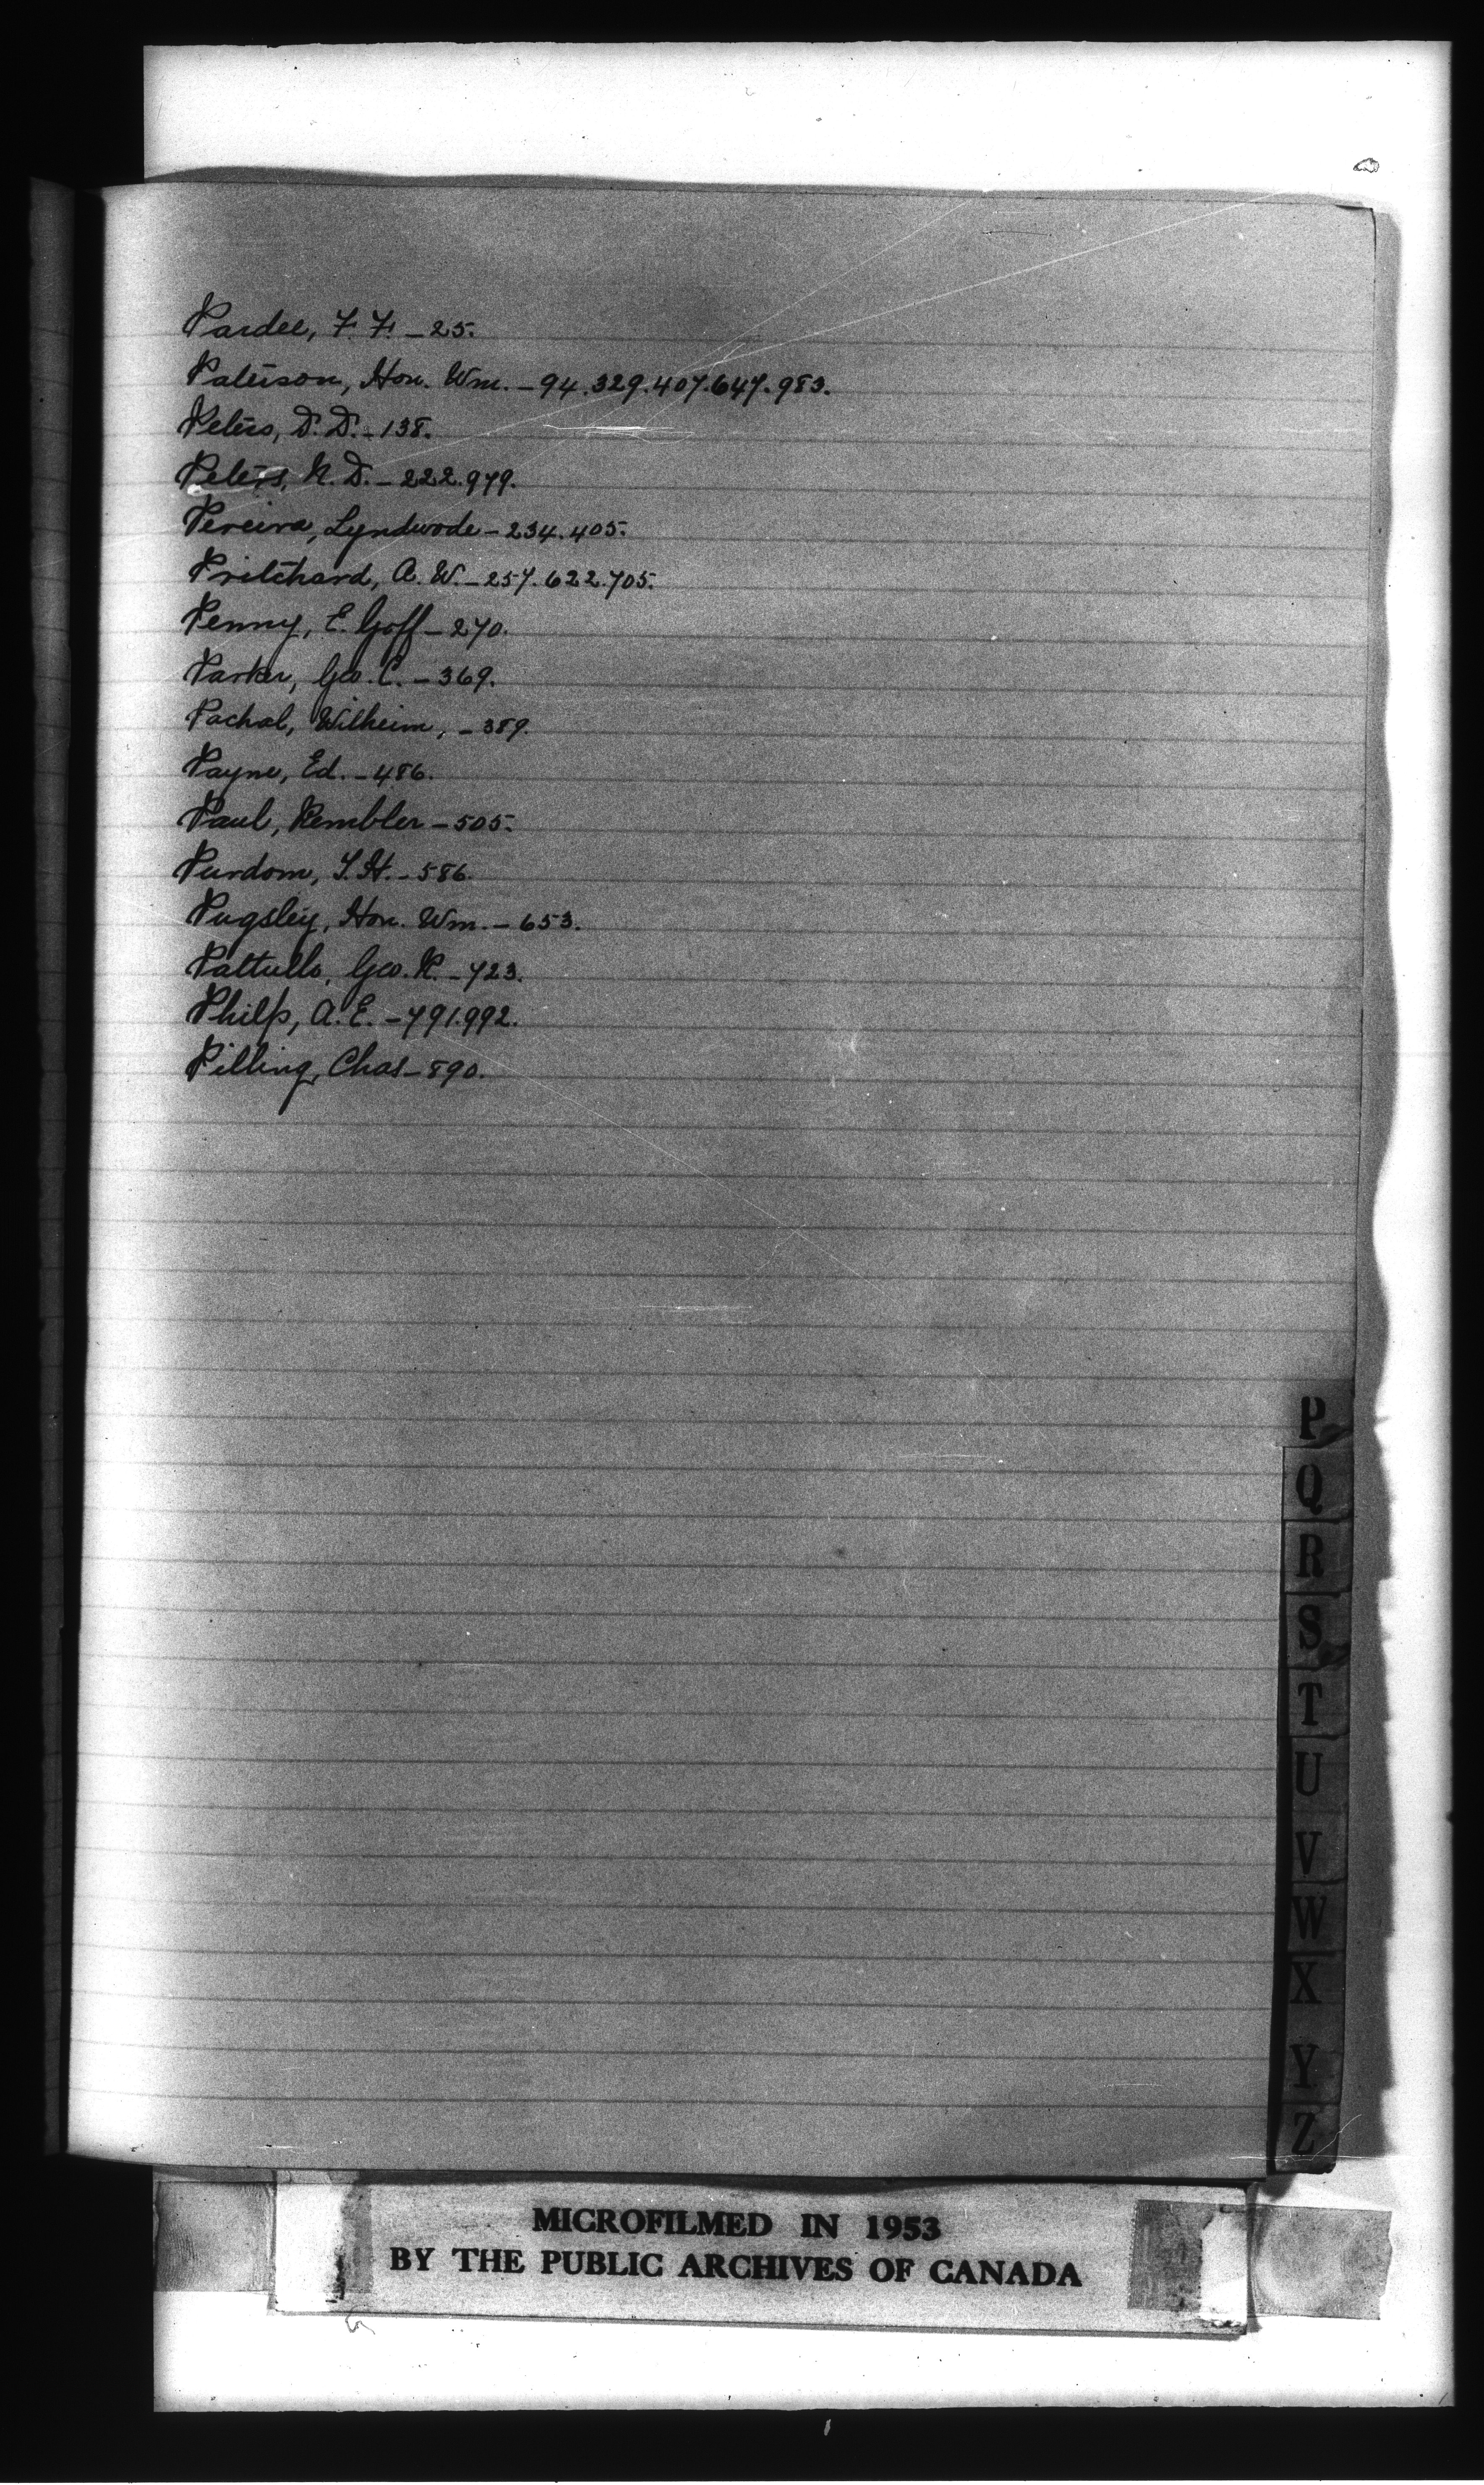 Pardee, F. F. - 25.
Paterson, Hon. Wm. - 94.329.407.647.983.
Peters, D. D. - 138.
Peters, N. D. - 222.979.
Pereira, Lyndwode - 234.405.
Pritchard, A. W. - 257.622.705.
Penny, E. Goff - 270.
Parker, Geo. C. - 369.
Pachal, Wilheim, - 389.
Payne, Ed. - 486.
Paul, Rembler - 505.
Purdom, T. H. - 586.
Pugsley, Hon. Wm. - 653.
Pattullo, Geo. R. - 723.
Philp, A. E. - 791.992.
Pilling, Chas - 890.
P
Q
R
S
T
U
V
W
X
Y
Z
MICROFILMED IN 1953
BY THE PUBLIC ARCHIVES OF CANADA